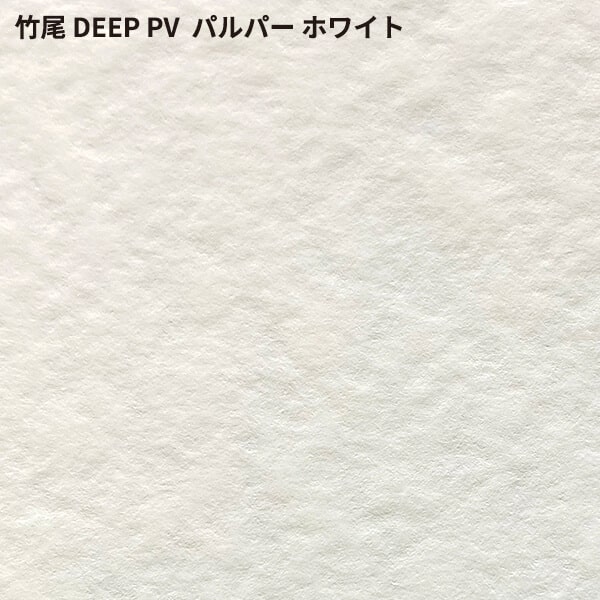 竹尾 DEEP PV パルパー ホワイト